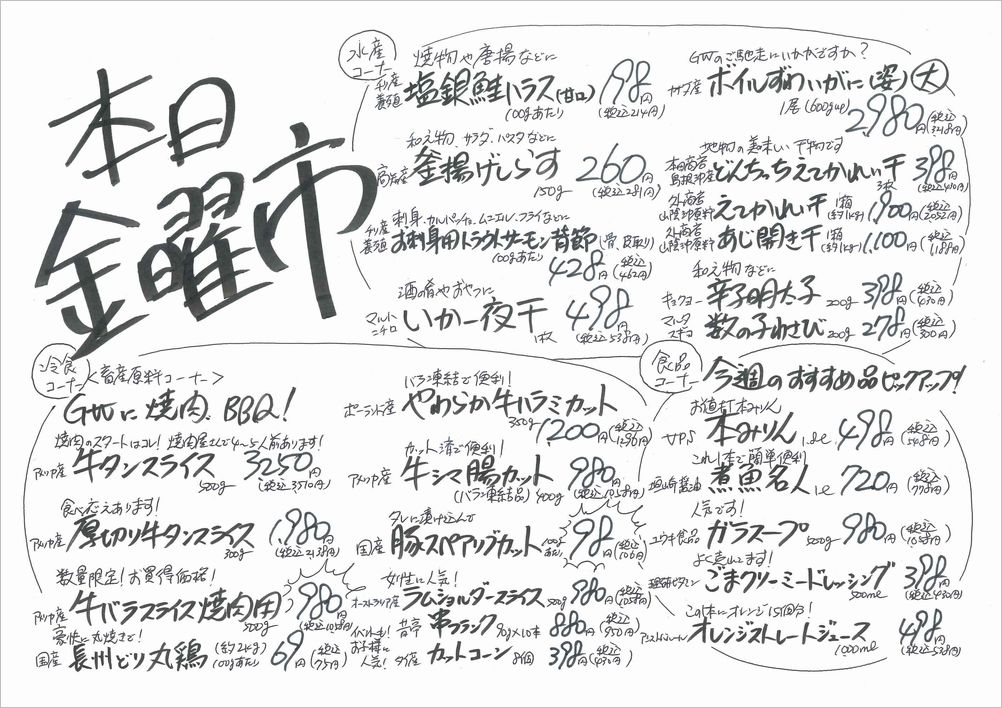 本日
金曜市
水産
コーナー
焼物や唐揚などに
チリ産
養殖 塩銀鮭ハラス(甘口) 198円
100gあたり (税込214円)
和え物、サラダ、パスタなどに
釜揚げしらす 260円
150g (税込281円)
刺身、カルパッチョ、ムニエル、フライなどに
チリ産
養殖 お刺身用トラウトサーモン背節(骨、皮取り)
100gあたり
428円(税込462円)
酒の肴やおやつに
マルハ
ニチロ いか一夜干 498円
1枚 (税込538円)
GWのご馳走にいかがですか?
ボイルずわいがに(姿) 大
1尾(600gup)
2980円(税込3218円)
地物の美味しい干物です
島根沖産 どんちっちえてかれい干 398円
3枚 (税込430円)
山陰沖原料 えてかれい干 1箱(約1kg) 1,900円(税込2052円)
山陰沖原料 あじ開き干 1箱(約1kg) 1,100円(税込1188円)
和え物などに
キョクヨー 辛子明太子 200g 398円(税込430円)
数の子わさび 200g 278円(税込300円)
冷食
コーナー <畜産原料コーナー>
GWに焼肉、BBQ!
焼肉のスタートはコレ!焼肉屋さんで4〜5人前あります!
アメリカ産 牛タンスライス 3,250円
500g (税込3510円)
食べ応えあります!
アメリカ産 厚切り牛タンスライス 1,980円
300g (税込2138円)
数量限定!お買得価格!
アメリカ産 牛バラスライス焼肉用 980円
500g (税込1058円)
豪快に丸焼きで!
国産 長州どり丸鶏 (約2kg)
100gあたり 69円(税込75円)
バラ凍結で便利!
ポーランド産 やわらか牛ハラミカット
350g 1200円(税込1296円)
カット済で便利!
アメリカ産 牛シマ腸カット 980円
(バラ凍結品) 400g (税込1058円)
タレに漬け込んで
国産 豚スペアリブカット 100gあたり 98円(税込106円)
女性に人気!
オーストラリア産 ラムショルダースライス 500g 980円(税込1058円)
イベントやお子様に人気!
串フランク 90g×10本 880円(税込950円)
タイ産 カットコーン 8個 398円(税込430円)
食品
コーナー 今週のおすすめ品ピックアップ!
お値打本みりん
本みりん 1.8ℓ 498円(税込548円)
これ1本で簡単便利
煮魚名人 1ℓ 720円(税込778円)
人気です!
ユウキ食品 ガラスープ 500g 980円(税込1058円)
よく売れてます!
理研ビタミン ごまクリーミードレッシング 398円
500ml (税込430円)
この1本にオレンジ15個分!
オレンジストレートジュース 498円
1,000ml (税込538円)